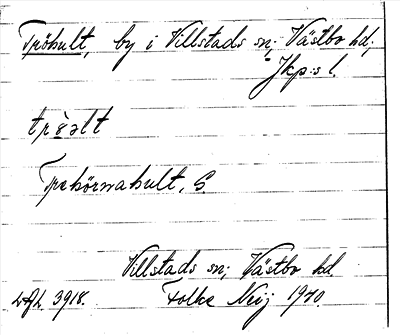 Tröhult, by i Villstads sn; Västbo hd,
Jkp:s l.
trø̀ƨlt
Trehörnahult, S.
Villstads sn; Västbo hd
3918. Folke Neij 1940.